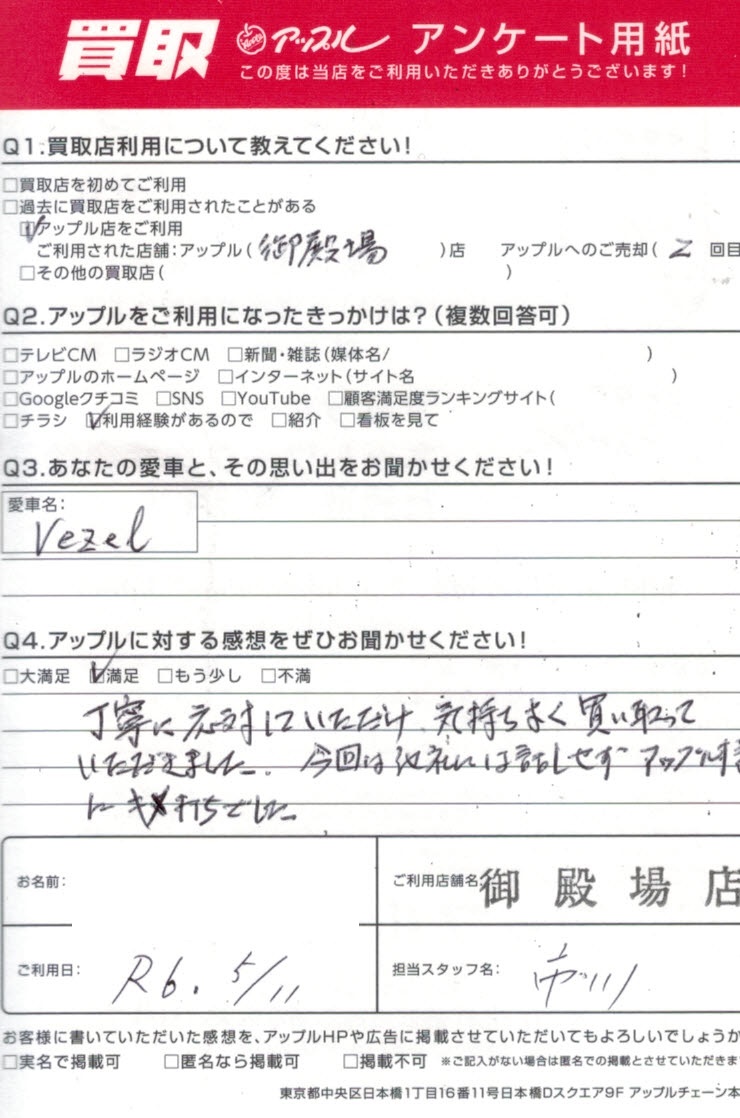 買取 アップル アンケート用紙
この度は当店をご利用いただきありがとうございます!
Q1.買取店利用について教えてください!
□買取店を初めてご利用
□過去に買取店をご利用されたことがある
☑アップル店をご利用
ご利用された店舗:アップル(御殿場)店 アップルへのご売却(2回目
□その他の買取店( )
Q2.アップルをご利用になったきっかけは?(複数回答可)
□テレビCM □ラジオCM □新聞・雑誌(媒体名/ )
□アップルのホームページ □インターネット(サイト名 )
□Googleクチコミ □SNS □YouTube □顧客満足度ランキングサイト(
□チラシ ☑利用経験があるので □紹介 □看板を見て
Q3.あなたの愛車と、その思い出をお聞かせください!
愛車名:
Vezel
Q4.アップルに対する感想をぜひお聞かせください!
□大満足 ☑満足 □もう少し □不満
丁寧に応対していただけ 気持ちよく買い取って
いただきました。今回は他社には話しせず アップル様
に 打ちでした。
お名前:
ご利用店舗名: 御殿場店
ご利用日: R6. 5/11
担当スタッフ名: 市川
お客様に書いていただいた感想を、アップルHPや広告に掲載させていただいてもよろしいでしょうか
□実名で掲載可 □匿名なら掲載可 □掲載不可 ※ご記入がない場合は匿名での掲載とさせていただきます
東京都中央区日本橋1丁目16番11号日本橋Dスクエア9F アップルチェーン本